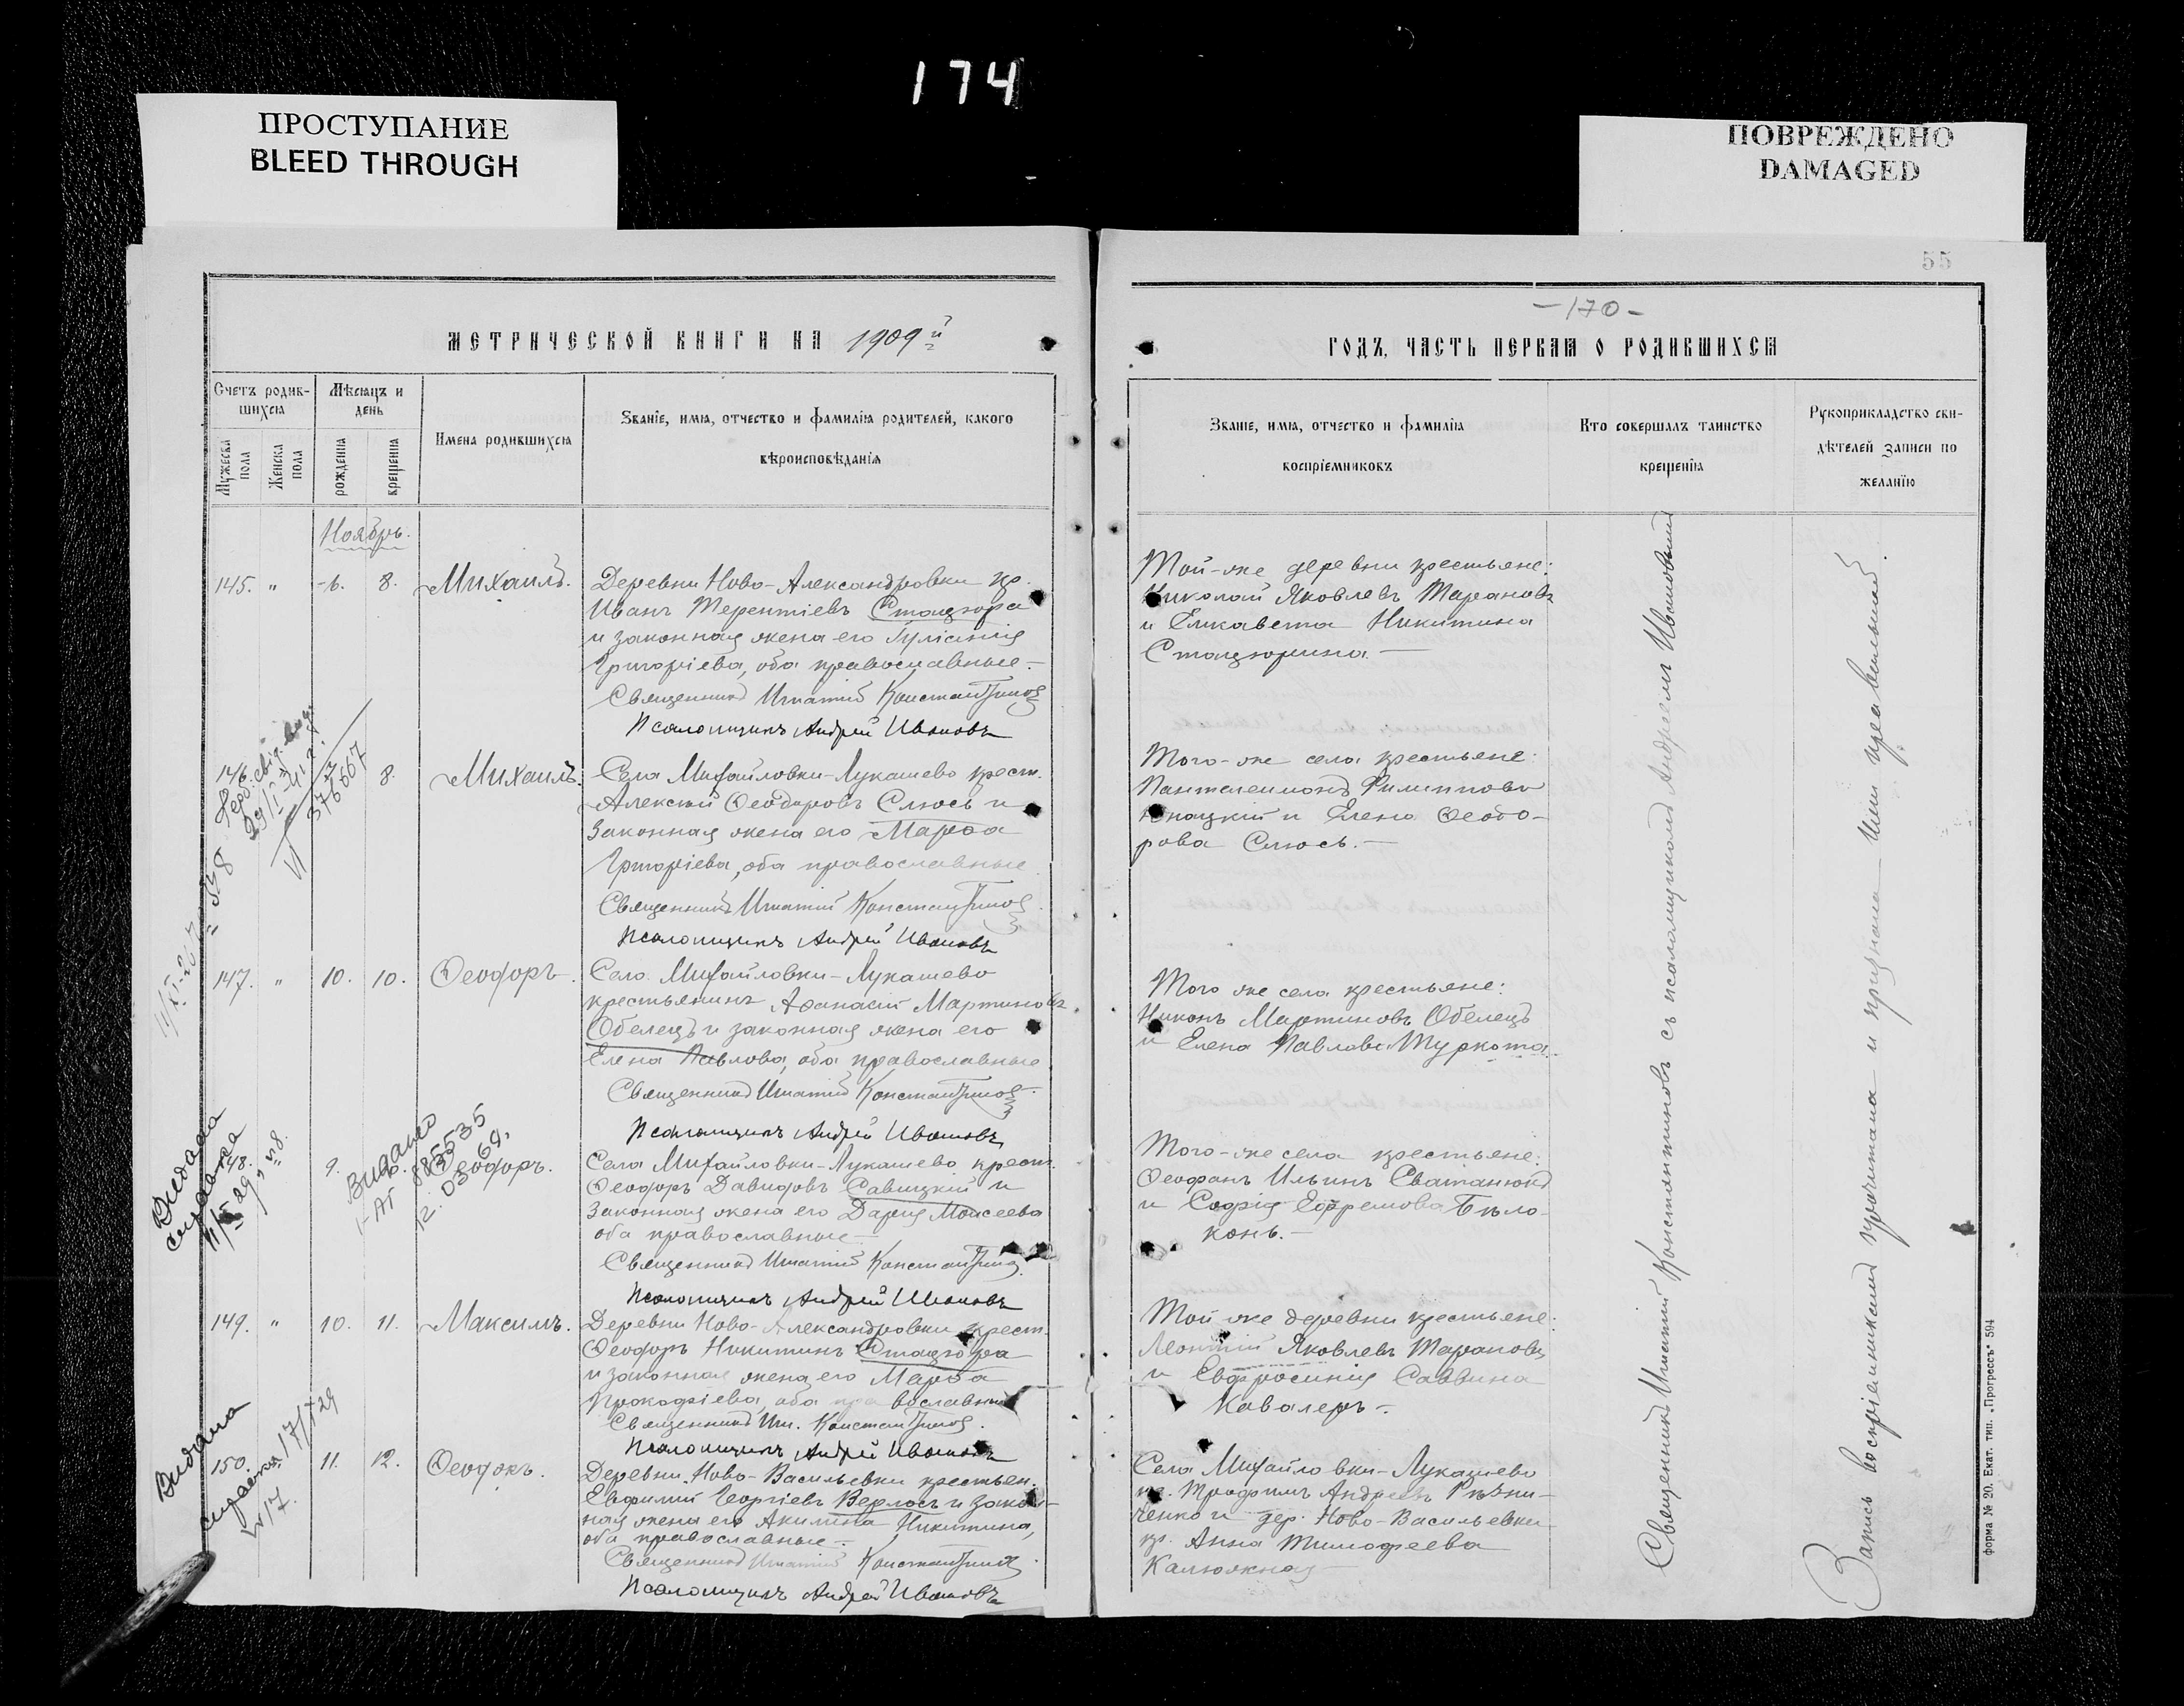 174
ПРОСТУПАНИЕ
BLEED THROUGH
ПОВРЕЖДЕНО
DAMAGED
55
МЕТРИЧЕСКОЙ КНИГИ НА 1909й
Счетъ родив-
шихся
Мѣсяцъ и
день
Имена родившихся
Званіе, имя, отчество и фамилія родителей, какого
вѣроисповѣданія
Мужеска
пола
Женска
пола
рожденія
крещенія
Ноябрь.
145. " 6. 8. Михаилъ.
Деревни Ново-Александровки кр.
Иванъ Терентіевъ Стацюра
и законная жена его Іуліанія
Григоріева, оба православные.-
Священникъ Игнатій Константиновъ
Псаломщикъ Андрей Ивановъ
146. 8. Михаилъ.
376667
Села Михайловки-Лукашево крест.
Алексій Ѳеодоровъ Слюсь и
законная жена его Марѳа
Григоріева, оба православные
Священникъ Игнатій Константиновъ
Псаломщикъ Андрей Ивановъ
147. " 10. 10. Ѳеодоръ.
Села Михайловки-Лукашево
крестьянинъ Аѳанасій Мартиновъ
Обелецъ и законная жена его
Елена Павлова, оба православные
Священникъ Игнатій Константиновъ
Псаломщикъ Андрей Ивановъ
148. 9. Ѳеодоръ.
Видана
справка
11/V 29, №8.
Видано
І-АГ 885535
12. 03 69.
Села Михайловки-Лукашево крест.
Ѳеодоръ Давидовъ Савицкій и
законная жена его Дарія Моисеева
оба православные-
Священникъ Игнатій Константиновъ
Псаломщикъ Андрей Ивановъ
149. " 10. 11. Максимъ.
Деревни Ново-Александровки крест.
Ѳеодоръ Никитинъ Стацюра
и законная жена его Марѳа
Прокофіева, оба православные
Священникъ Игн. Константиновъ.
Псаломщикъ Андрей Ивановъ
150. 11. 12.
Видана
справка 17/V 29
№17.
Деревни Ново-Васильевки крестьян.
Евфимій Георгіевъ Верлосъ и закон-
ная жена его Акилина Никитина,
оба православные-.
Священникъ Игнатій Константиновъ.
Псаломщикъ Андрей Ивановъ
-170-
ГОДЪ, ЧАСТЬ ПЕРВАЯ О РОДИВШИХСЯ
Званіе, имя, отчество и фамилія
воспріемниковъ
Кто совершалъ таинство
крещенія
Рукоприкладство сви-
дѣтелей записи по
желанію
Той-же деревни крестьяне:
Николай Яковлевъ Тарановъ
и Елисавета Никитина
Стацюрина.-
Того-же села крестьяне:
Пантелеимонъ Филипповъ
и Елена Ѳеодо-
рова Слюсь.-
Того же села крестьяне:
Никонъ Мартиновъ Обелецъ
и Елена Павлова Туркота.
Того-же села крестьяне:
Ѳеофанъ Ильинъ Сватанюкъ
и Софія Ефремова Бѣло-
конь.-
Той же деревни крестьяне:
Леонтій Яковлевъ Тарановъ
и Евфросинія Саввина
Кавалеръ-.
Села Михайловки-Лукашево
кр. Трофимъ Андреевъ Рѣзни-
ченко и дер. Ново-Васильевки
кр. Анна Тимофеева
Калюжная-
Священникъ Игнатій Константиновъ съ псаломщикомъ Андреемъ Ивановымъ
Запись воспріемникамъ прочитана и признана ими правильной.
Форма № 20. Екат. тип. „Прогрессъ" 594